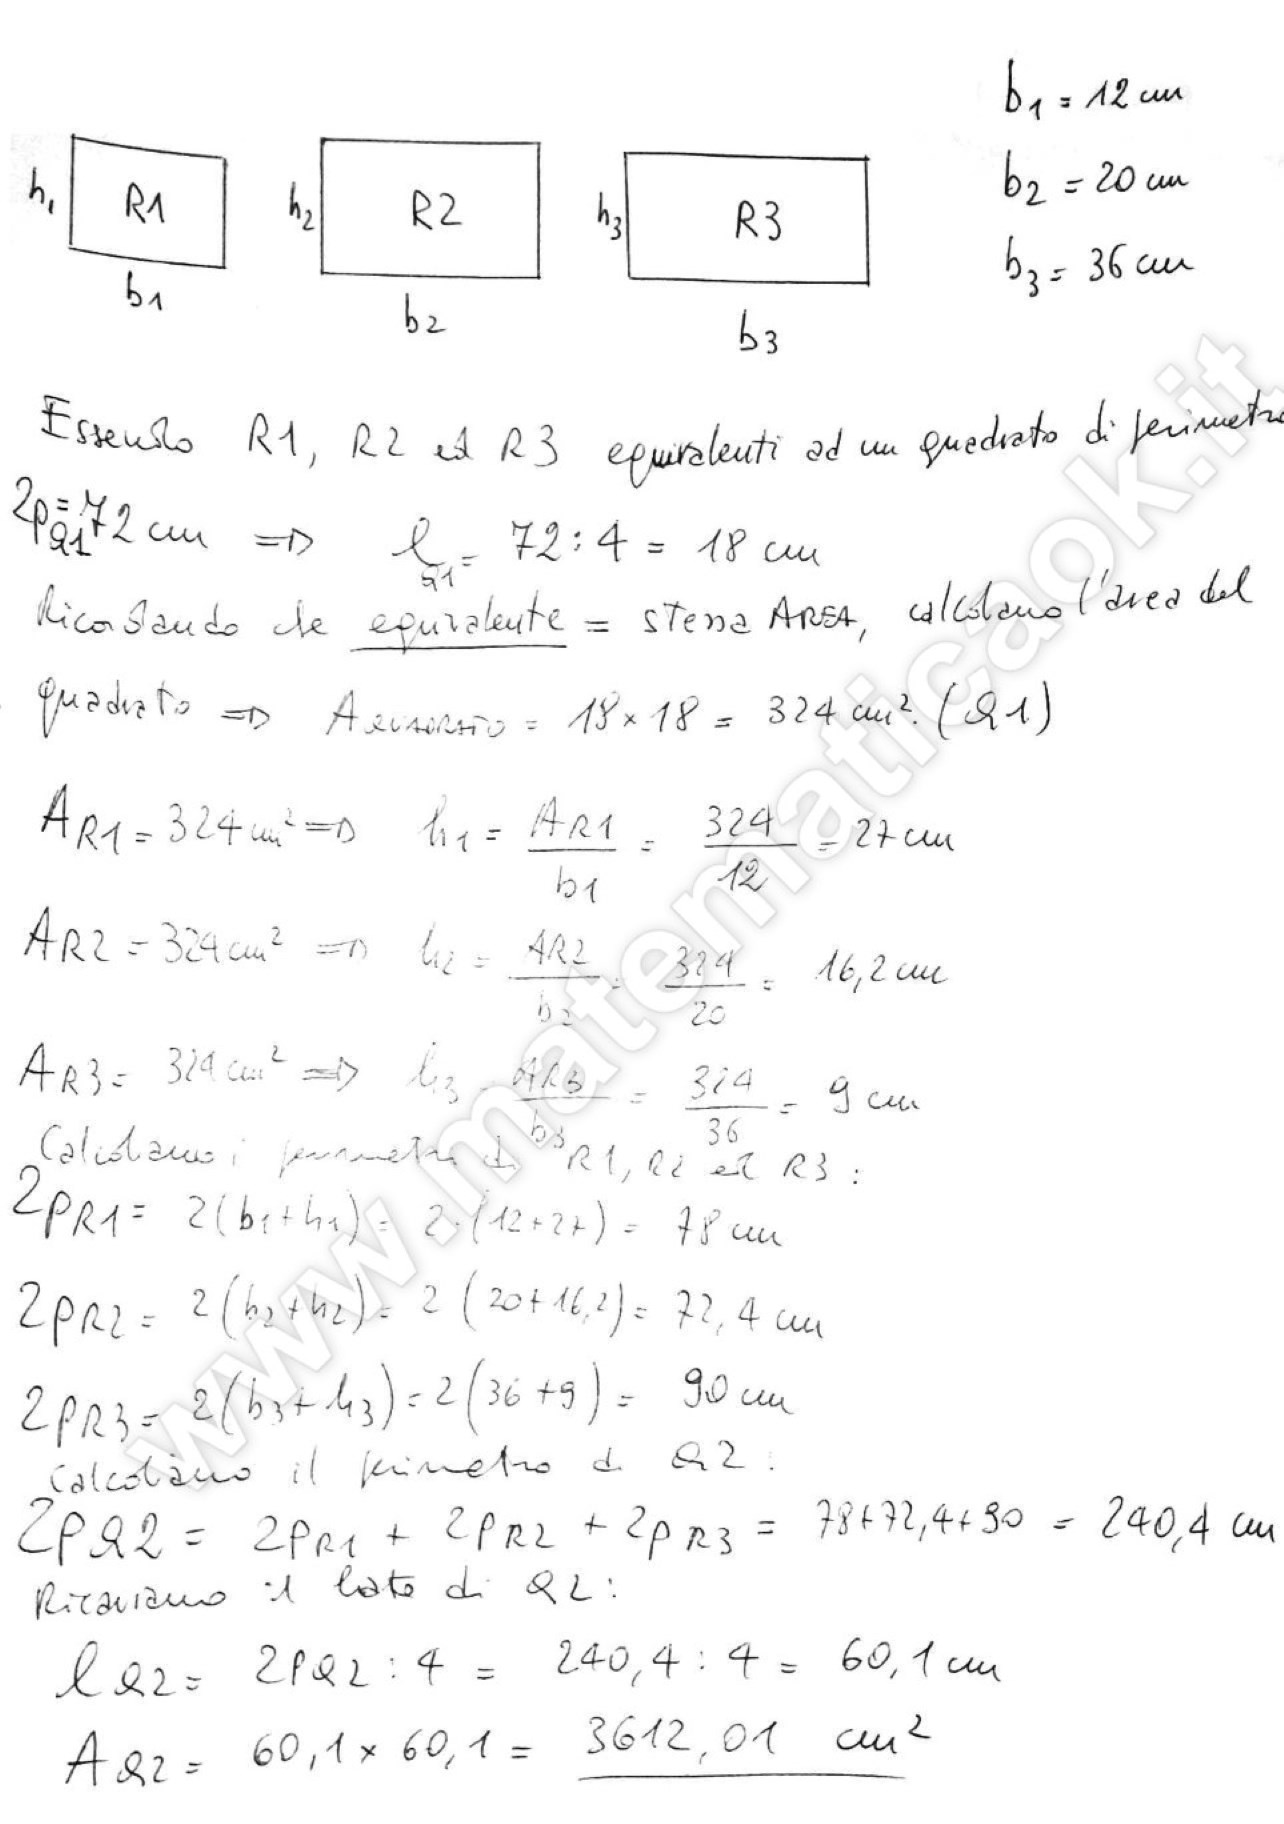 b1 = 12 cm
b2 = 20 cm
b3 = 36 cm
h1 R1 h2 R2 h3 R3
b1 b2 b3
Essendo R1, R2 ed R3 equivalenti ad un quadrato di perimetro
2pQ1 = 72 cm => lQ1 = 72 : 4 = 18 cm
Ricordando che equivalente = stessa AREA, calcoliamo l'area del
quadrato => AQUADRATO = 18 × 18 = 324 cm². (Q1)
AR1 = 324 cm² => h1 = AR1/b1 = 324/12 = 27 cm
AR2 = 324 cm² => h2 = AR2/b2 = 324/20 = 16,2 cm
AR3 = 324 cm² => h3 = AR3/b3 = 324/36 = 9 cm
Calcoliamo i perimetri di R1, R2 ed R3 :
2pR1 = 2(b1+h1) = 2·(12+27) = 78 cm
2pR2 = 2(b2+h2) = 2(20+16,2) = 72,4 cm
2pR3 = 2(b3+h3) = 2(36+9) = 90 cm
Calcoliamo il perimetro di Q2 :
2pQ2 = 2pR1 + 2pR2 + 2pR3 = 78+72,4+90 = 240,4 cm
Ricaviamo il lato di Q2 :
lQ2 = 2pQ2 : 4 = 240,4 : 4 = 60,1 cm
AQ2 = 60,1 × 60,1 = 3612,01 cm²
www.matematicaok.it